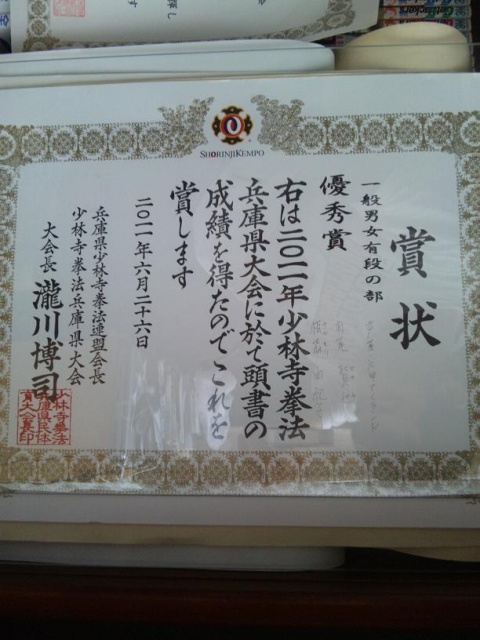 SHORINJIKEMPO
賞状
一般男女有段の部
優秀賞
右は二〇一一年少林寺拳法
兵庫県大会に於て頭書の
成績を得たのでこれを
賞します
二〇一一年六月二十六日
兵庫県少林寺拳法連盟会長
少林寺拳法兵庫県大会
大会長 瀧川博司